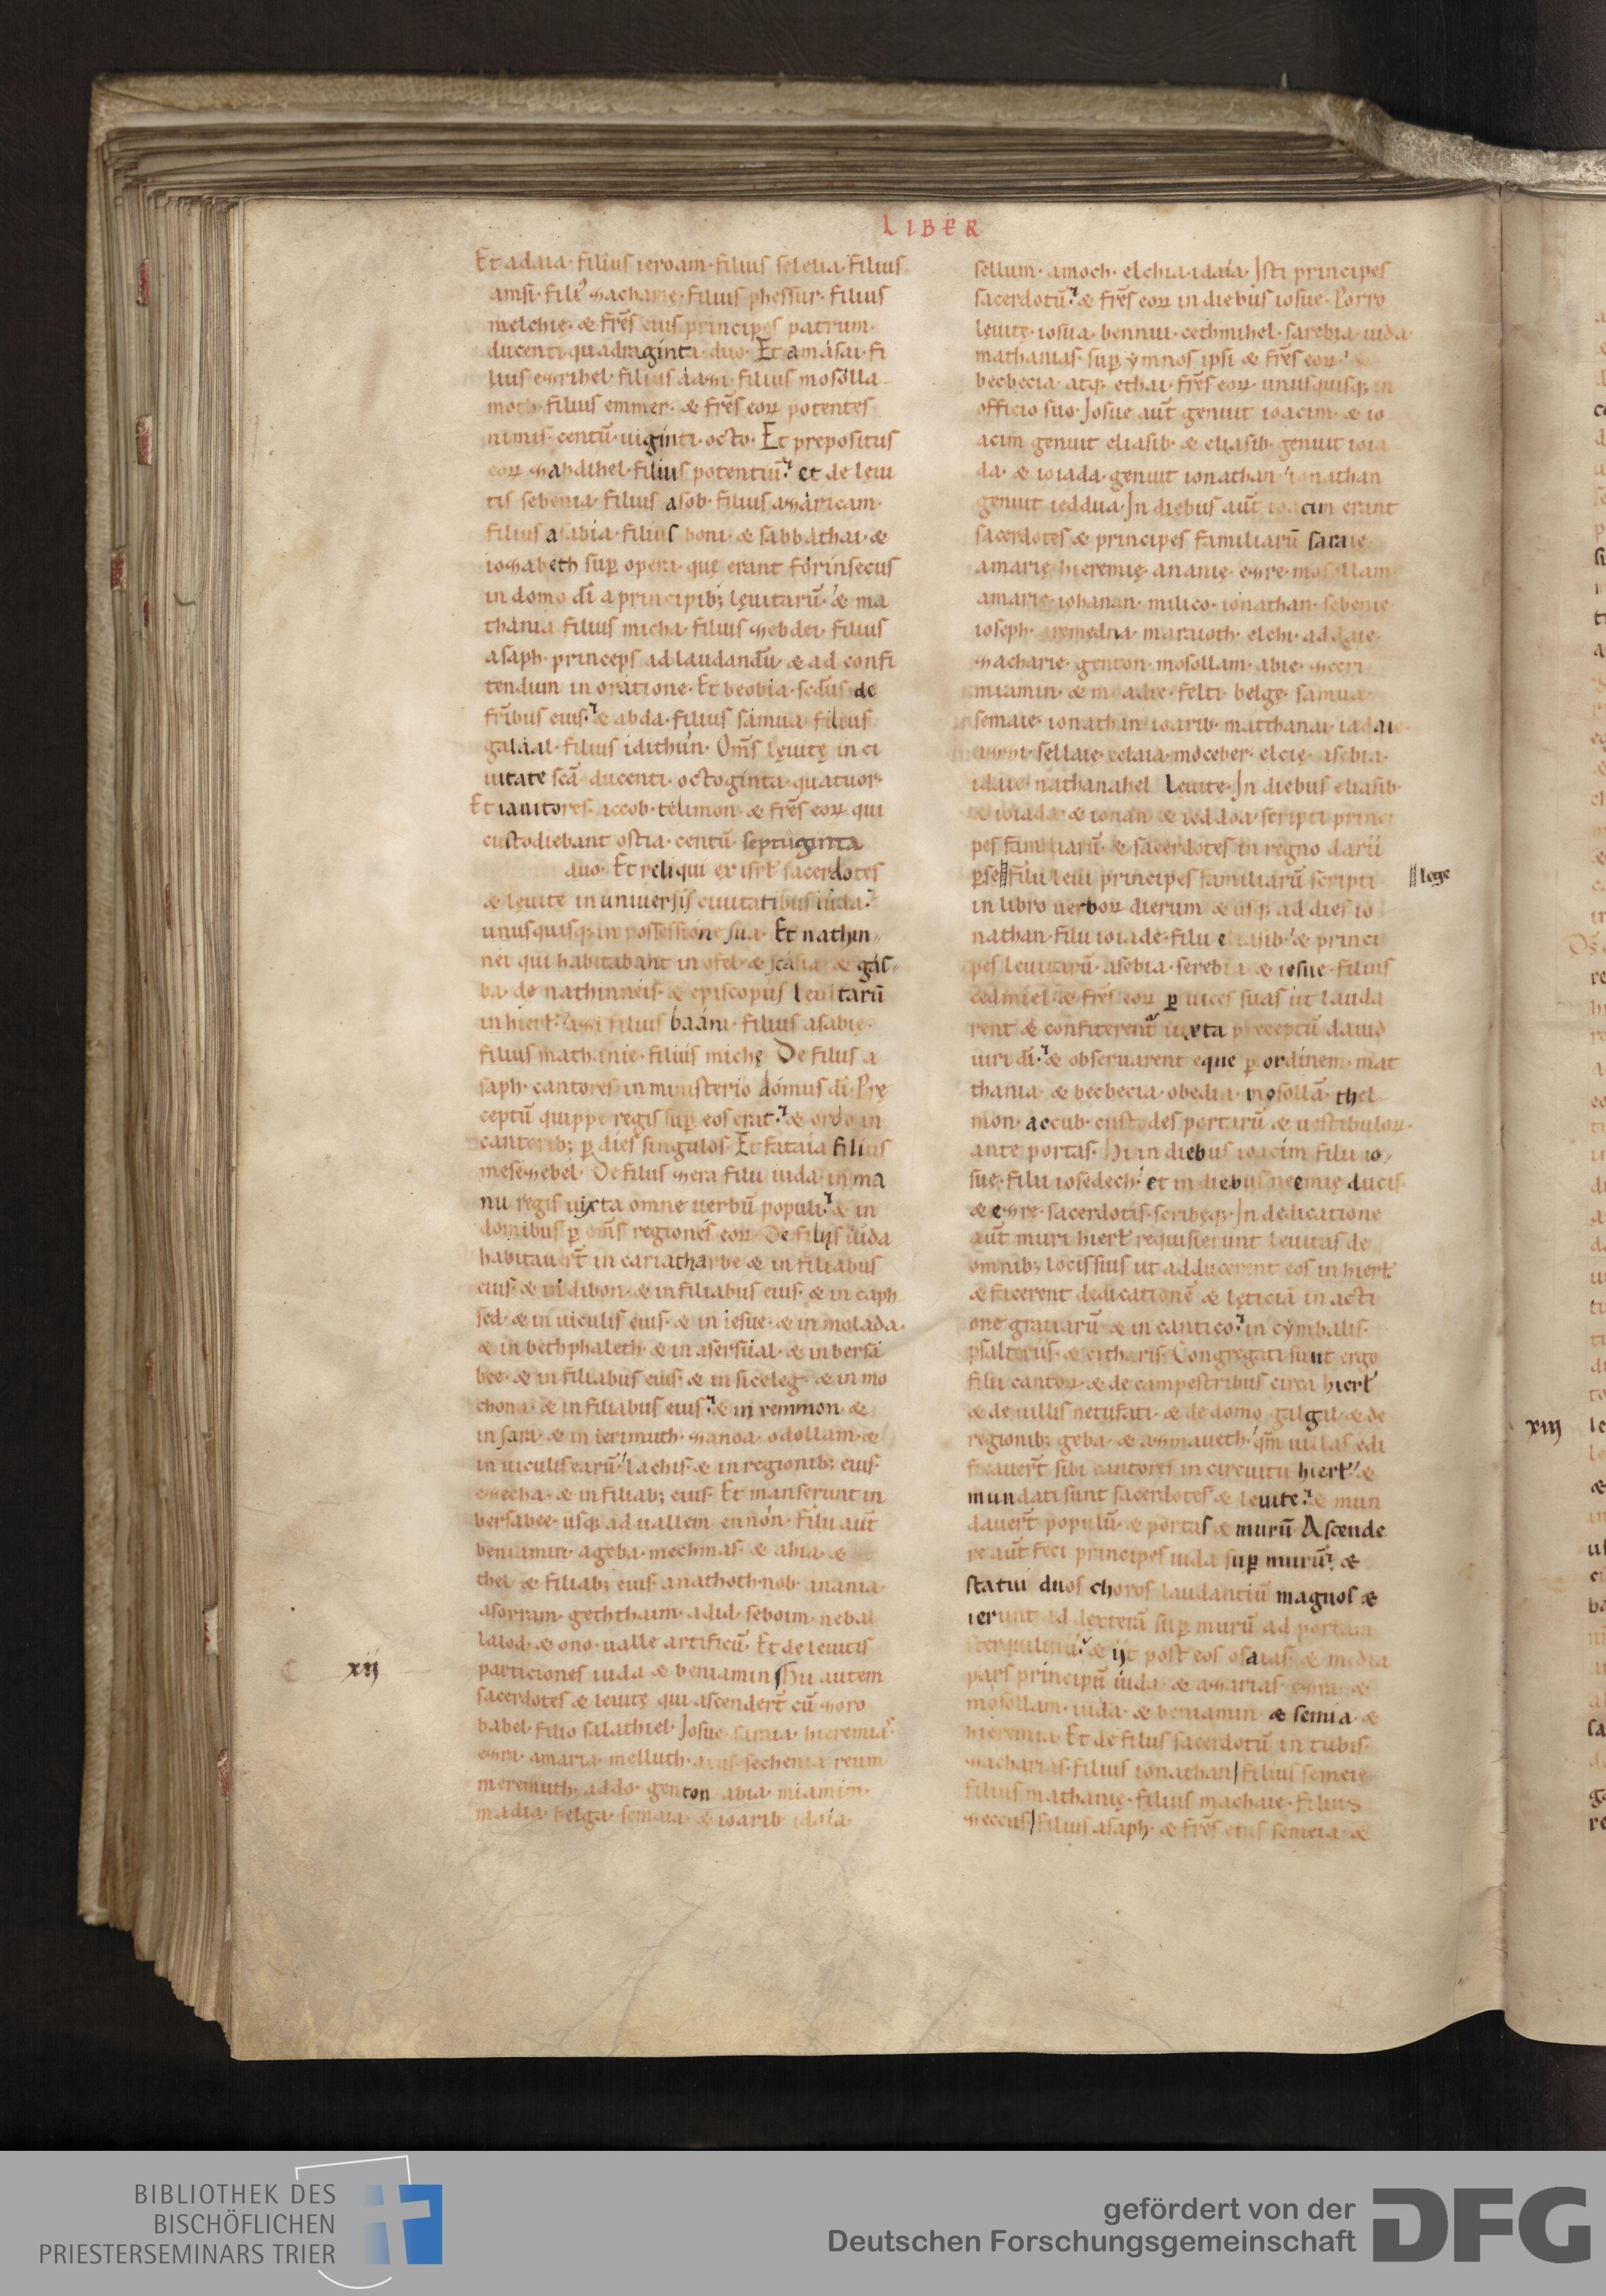 LIBER
Et adaia· filius ieroam· filius felelia· filius
amsi· fili᾿ zacharie· filius phessur· filius
melchie· & fr̄es eius principes patrum·
ducenti quadraginta duo· Et amasai· fi
lius ezrihel· filius aazi· filius mosolla
moth· filius emmer· & fr̄es eoꝝ potentes
nimis· centū· uiginti· octo· Et prepositus
eoꝝ zabdihel· filius potentiū· et de leui
tis sebenia· filius asob· filius azaricam·
filius asabia· filius boni· & sabbathai· &
iozabeth sup̱ opera· quę erant forinsecus
in domo dī a principib; lęuitarū· & ma
thania filius micha· filius zebdei· filius
asaph· princeps ad laudandū· & ad confi
tendum in oratione· Et becbia· secđus de
fr̄ibus eius· & abda· filius samua· filius
galaal· filius idithun· Om̄s lęuitę in ci
uitate scā· ducenti· octoginta· quatuor·
Et ianitores· accob· telimon· & fr̄es eoꝝ qui
custodiebant ostia· centū· septuginta
duo· Et reliqui ex isrł sacerdotes
& lęuite in uniuersis ciuitatibus iuda·
unusquisq; in possessione sua· Et nathin
nei qui habitabant in ofel· & scasia· & gas
ba de nathinneis· & episcopus leuitarū
in hierł· azi filius baani· filius asabie·
filius mathanie· filius michę De filiis a
saph· cantores in ministerio domus dī· Prę
ceptū quippe regis sup̱ eos erat· & ordo in
cantorib; ꝑ dies singulos· Et fataia filius
mesezebel· De filiis zera filii iuda· in ma
nu regis iuxta omne uerbū populi· & in
domibus ꝑ om̄s regiones eoꝝ· De filijs iuda
habitauer̄t in cariatharbe & in filiabus
eius· & in dibon· & in filiabus eius· & in caph
sed· & in uiculis eius· & in iesue· & in molada·
& in bethphaleth· & in asersual· & in bersa
bee· & in filiabus eius· & in siceleg· & in mo
chona· & in filiabus eius· & in remmon· &
in sara· & in ierimuth· zanoa· odollam· &
in uiculis earū· lachis· & in regionib; eius·
ezecha· & in filiab; eius· Et manserunt in
bersabee· usq; ad uallem ennon· Filii aut̄
beniamin· a geba· mechmas· & ahia· &
thel· & filiab; eius· anathoth· nob· anania·
asorram· geththaim· adid· seboim· nebal
lalod· & ono· ualle artificū· Et de leuitis
xij
particiones iuda & beniamin Hii autem
sacerdotes & leuitę qui ascender̄t cū zoro
babel· filio salathiel· Iosue· saraia· hieremias
ezra· amaria· melluth· atus· sechenia· reum
meremuth· addo· genton· abia· miamim·
madia· belga· semaia· & ioarib· idaia·
sellum· amoch· elchia· idaia· Isti principes
sacerdotū· & fr̄es eoꝝ in diebus iosue· Porro
lęuitę· iosua· bennui· cethmihel· sarebia· iuda·
mathanias· sup̱ ymnos ipsi & fr̄es eoꝝ· &
becbecia· atq; ethai· fr̄es eoꝝ· unusquisq; in
officio suo· Iosue aut̄ genuit ioacim· & io
acim genuit eliasib· & eliasib· genuit ioia
da· & ioiada· genuit ionathan· ionathan
genuit ieddua· In diebus aut̄ ioacim erant
sacerdotes & principes familiarū saraie
amarię· hieremię· ananie· ezre· mosollam
amarie· iohanan· milico· ionathan· sebenie·
ioseph· aremedna· maraioth· elchi· addaie·
zacharie· genton· mosollam· abie· zecri·
miamin· & moadie· felti· belge· samua·
semaie· ionathan· ioarib· matthanai· iadaie·
azzi· sellaię· celaia· moceber· elcię· asebia·
idaie· nathanahel Leuite· In diebus eliasib·
& ioiada· & ionan· & ieddoa· scripti princi
pes familiarū· & sacerdotes in regno darii
ꝑse filii leui principes familiarū scripti
lege
in libro uerboꝝ dierum & usq; ad dies io
nathan· filii ioiade· filii eliasib· & princi
pes leuitarū· asebia· serebia· & iesue· filius
cedmiel· & fr̄es eoꝝ ꝑ uices suas ut lauda
rent & confiterent̄ iuxta preceptū dauid
uiri dī· & obseruarent eque ꝑ ordinem· mat
thania· & becbecia· obedia· mosollā· thel
mon· accub· custodes portarū & uestibuloꝝ·
ante portas· Hi in diebus ioacim filii io
sue· filii iosedech· et in diebus neemię ducis·
& ezre· sacerdotis· scribeq;· In dedicatione
aut̄ muri hierł requisierunt leuitas de
omnib; locis suis ut adducerent eos in hierł
& facerent dedicationē & lęticiā in acti
one gratiarū· & in cantico· in cymbalis·
psalteriis· & citharis· Congregati sunt ergo
filii cantoꝝ· & de campestribus circa hierł
& de uillis netufati· & de domo galgal· & de
regionib; geba· & azmaueth· qm̄ uillas edi
ficauer̄t sibi cantores in circuitu hierł· &
mundati sunt sacerdotes & leuite· & mun
dauer̄t populū· & portas & murū Ascende
re aut̄ feci principes iuda sup̱ murū· &
statui duos choros laudantiū magnos &
ierunt ad dexterā sup̱ murū ad portam
sterquilinii· & ijt post eos osaias· & media
pars principū iuda· & azarias· ezra· &
mosollam· iuda· & beniamin· & semia· &
hieremia· Et de filiis sacerdotū in tubis·
zacharias· filius ionathan filius semeię
filius mathanię· filius machaie· filius
zeccus filius asaph· & fr̄es eius semeia· &
xiij
BIBLIOTHEK DES
BISCHÖFLICHEN
PRIESTERSEMINARS TRIER
gefördert von der
Deutschen Forschungsgemeinschaft
DFG